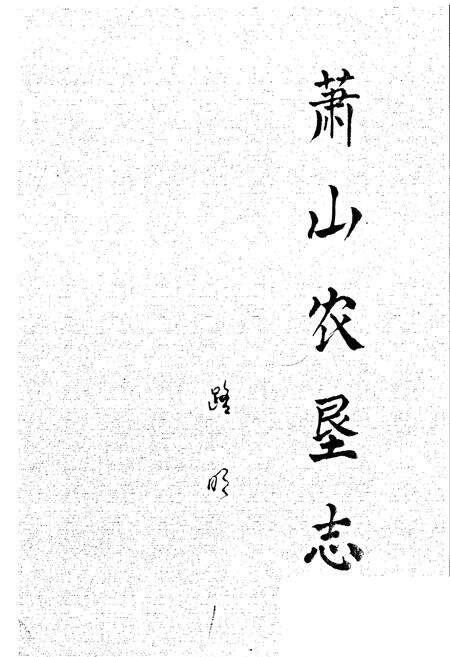 萧山农垦志
路明